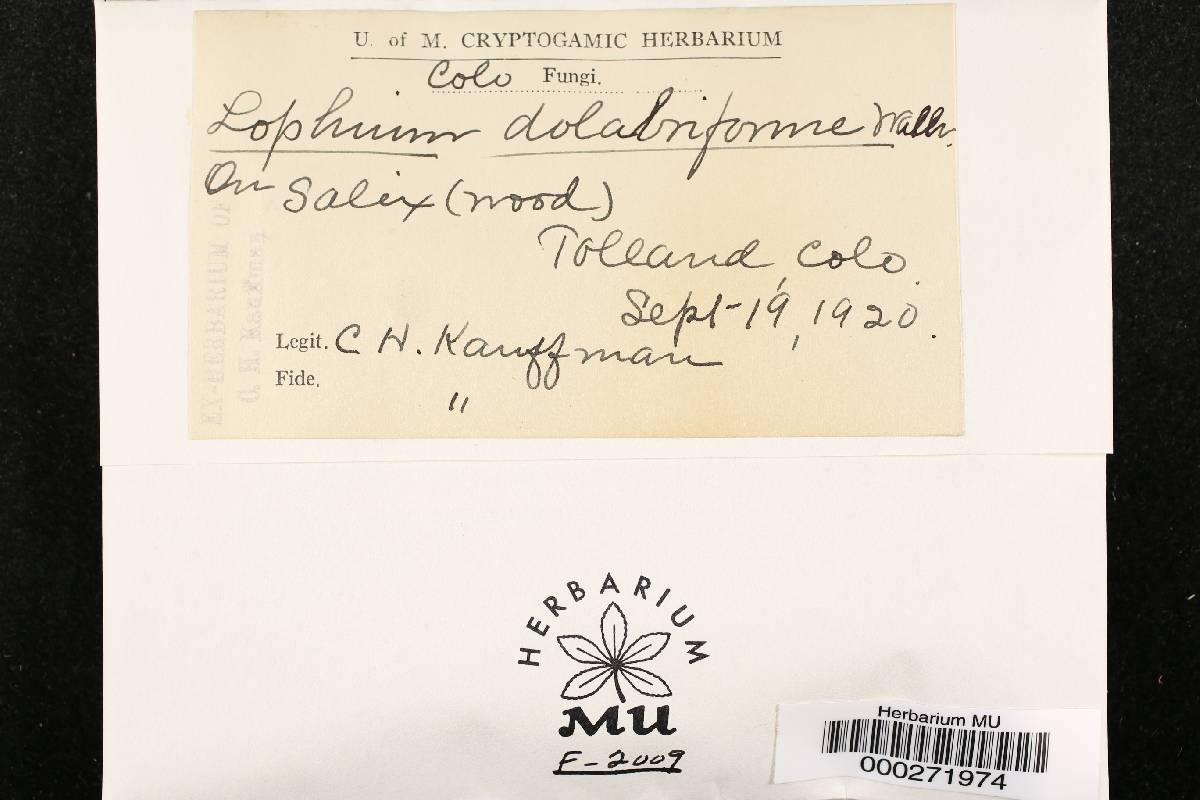 U. of M. CRYPTOGAMIC HERBARIUM
Colo Fungi.
Lophium dolabriforme Wallr.
On Salix (wood)
Tolland, Colo.
Sept-19, 1920.
Legit. C H. Kauffman
Fide. "
EX-HERBARIUM OF
C. H. Kauffman
HERBARIUM
MU
F-2009
Herbarium MU
000271974